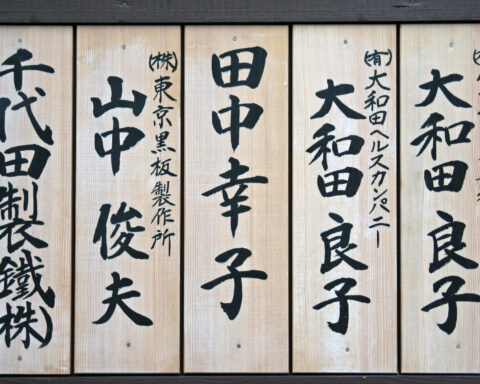 大和田良子
(有)大和田ヘルスカンパニー
大和田良子
田中幸子
(株)東京黒板製作所
山中俊夫
千代田製鐵(株)